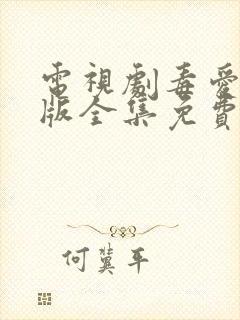 電視劇毒愛
版全集免費
何冀平